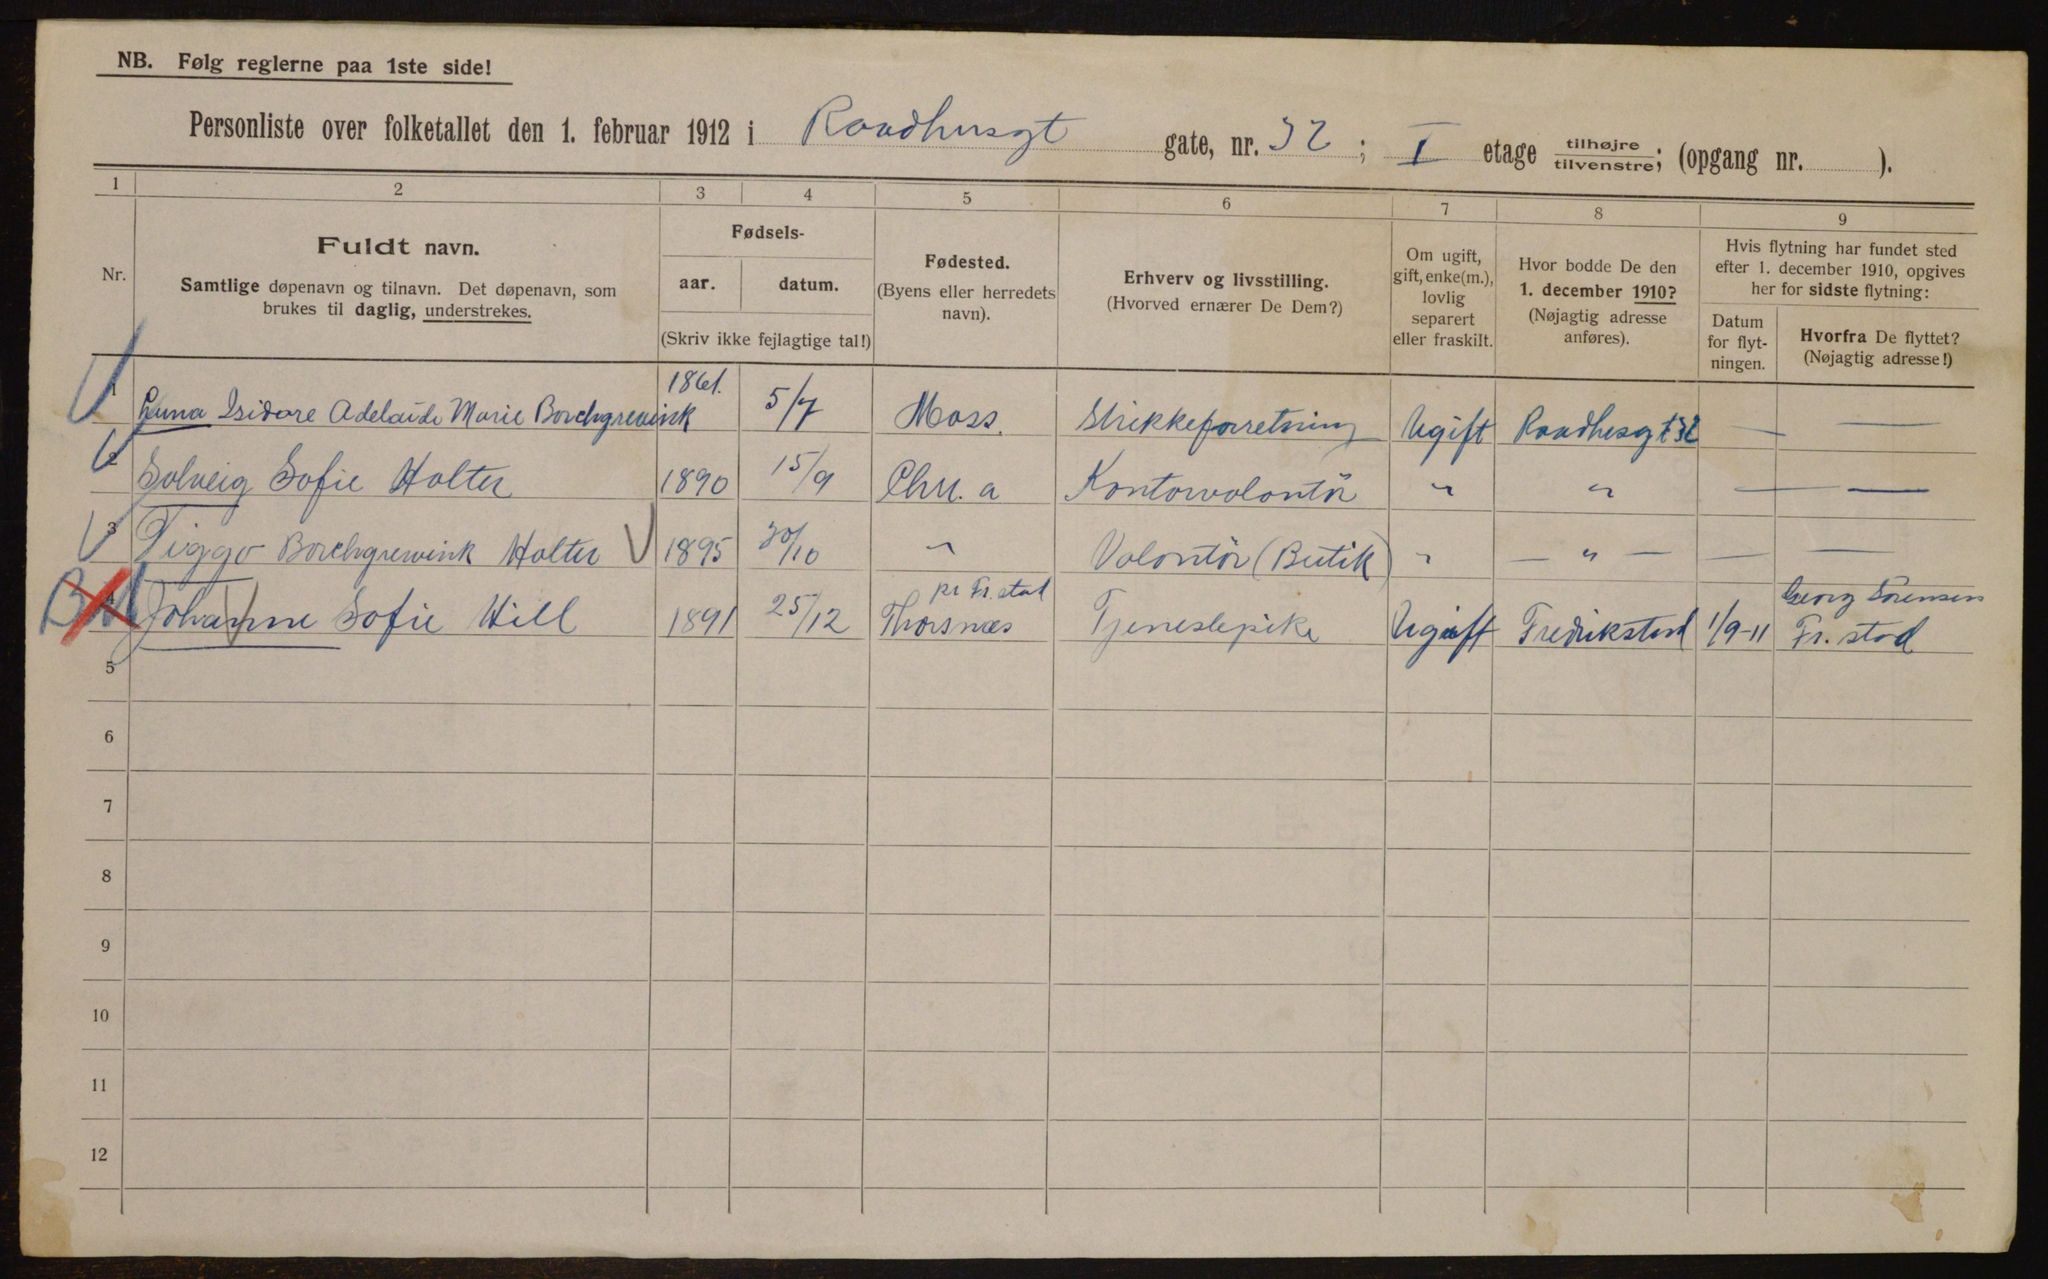 NB. Følg reglerne paa 1ste side!
Personliste over folketallet den 1. februar 1912 i Raadhusgt gate, nr. 32; I etage tilhøjre tilvenstre; (opgang nr. ).
1 2 3 4 5 6 7 8 9
Nr.
Fuldt navn.
Samtlige døpenavn og tilnavn. Det døpenavn, som
brukes til daglig, understrekes.
Fødsels-
aar. datum.
(Skriv ikke fejlagtige tal!)
Fødested.
(Byens eller herredets
navn).
Erhverv og livsstilling.
(Hvorved ernærer De Dem?)
Om ugift,
gift, enke(m.),
lovlig
separert
eller fraskilt.
Hvor bodde De den
1. december 1910?
(Nøjagtig adresse
anføres).
Hvis flytning har fundet sted
efter 1. december 1910, opgives
her for sidste flytning:
Datum
for flyt-
ningen.
Hvorfra De flyttet?
(Nøjagtig adresse!)
1 Isidore Adelaide Marie Borchgrevink 1861. 5/7 Moss. Strikkeforretning Ugift Raadhusgt 32 — —
2 Solveig Sofie Holter 1890 15/9 Chr. a Kontorvolontör " " — —
3 Viggo Borchgrevink Holter 1895 30/10 " Volontör (Butik) " — " — — —
4 Johanne Sofie Hill 1891 25/12 Thorsnæs pr Fr.stad Tjenestepike Ugift Fredrikstad 1/9-11 Georg Sörensen Fr. stad
5
6
7
8
9
10
11
12